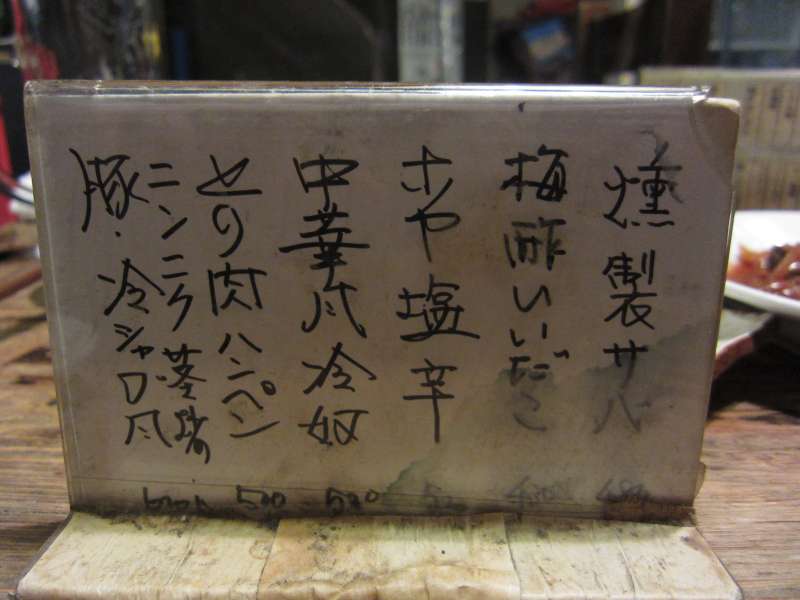 燻製サバ
梅酢いいだこ
ホヤ塩辛
中華風冷奴 520
とり肉ハンペン 520
ニンニク茎
豚・冷シャブ風